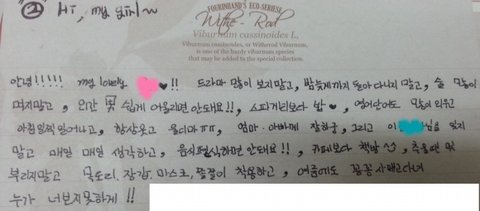 ② Hi, my girl~
FOURINHAND'S ECO-SERIESE
Withe-Rod
Viburnum cassinoides L,
Viburnum cassinoides, or Witherod Viburnum,
is one of the hardy viburnum species
that may be added to the special collection.
안녕!!!!! my lovely ♥!! 드라마 많이 보지말고, 밤늦게까지 돌아다니지 말고, 술 많이
먹지말고, 외간 男 쉽게 어울리면 안돼요!!, 스파게티보다 밥♥, 영어단어도 많이 외우고
아침일찍 일어나고, 항상웃고 울지마ㅠㅠ, 엄마·아빠께 잘하구, 그리고 이 님을 잊지
말고 매일 매일 생각하고, 음식편식하면 안돼요!!, 카페보다 책방, 추울땐 멋
부리지말고 목도리, 장갑, 마스크, 쫄쫄이 착용하고, 여름에도 꽁꽁 싸매고다녀
누가 너보지못하게!!